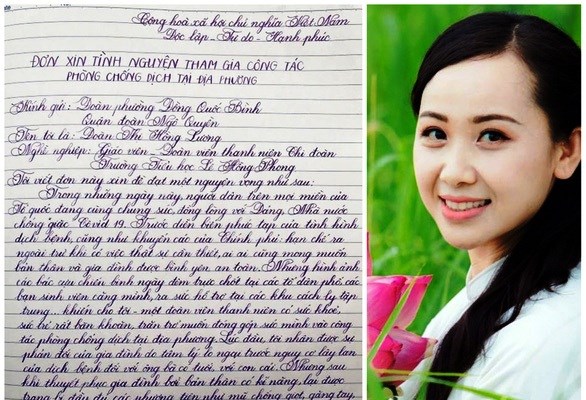 Cộng hoà xã hội chủ nghĩa Việt Nam
Độc lập - Tự do - Hạnh phúc
ĐƠN XIN TÌNH NGUYỆN THAM GIA CÔNG TÁC
PHÒNG CHỐNG DỊCH TẠI ĐỊA PHƯƠNG
Kính gửi: Đoàn phường Đông Quốc Bình
Quận đoàn Ngô Quyền
Tên tôi là: Đoàn Thị Hồng Lương
Nghề nghiệp: Giáo viên - Đoàn viên thanh niên Chi đoàn
Trường Tiểu học Lê Hồng Phong
Tôi viết đơn này xin đề đạt một nguyện vọng như sau:
Trong những ngày này, người dân trên mọi miền của
Tổ quốc đang cùng chung sức, đồng lòng với Đảng, Nhà nước
chống giặc Covid 19. Trước diễn biến phức tạp của tình hình
dịch bệnh, cũng như khuyến cáo của Chính phủ: hạn chế ra
ngoài trừ khi có việc thật sự cần thiết, ai ai cũng mong muốn
bản thân và gia đình được bình yên an toàn. Nhưng hình ảnh
các bác cựu chiến binh ngày đêm trực chốt tại các tổ dân phố, các
bạn sinh viên căng mình, ra sức hỗ trợ tại các khu cách ly tập
trung... khiến cho tôi - một đoàn viên thanh niên có sức khoẻ,
sức trẻ rất băn khoăn, trăn trở muốn đóng góp sức mình và công
tác phòng chống dịch tại địa phương. Lúc đầu, tôi nhận được sự
phản đối của gia đình do tâm lý lo ngại trước nguy cơ lây lan
của dịch bệnh đối với ông bà có tuổi, với con cái. Nhưng sau
khi thuyết phục gia đình bởi bản thân có kĩ năng, lại được
trang bị đầy đủ các phương tiện như mũ chống giọt, găng tay,